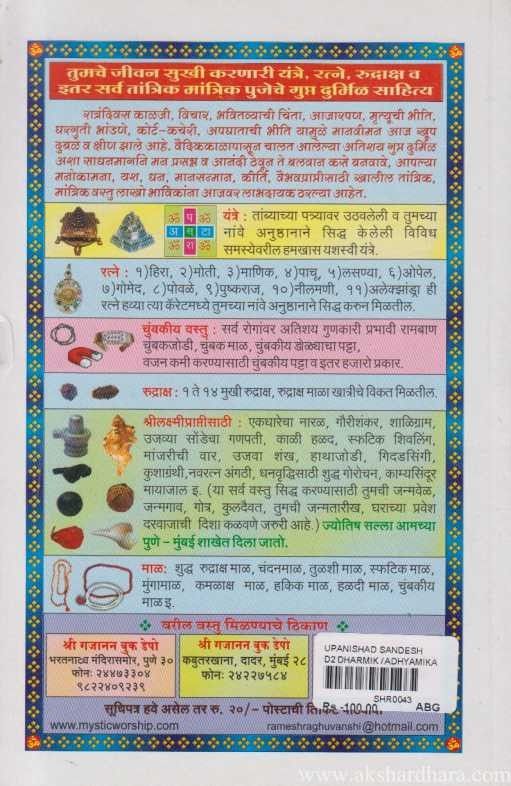 तुमचे जीवन सुखी करणारी यंत्रे, रत्ने, रुद्राक्ष व
इतर सर्व तांत्रिक मांत्रिक पुजेचे गुप्त दुर्मिळ साहित्य
रात्रंदिवस काळजी, विचार, भवितव्याची चिंता, आजारपण, मृत्यूची भीति,
घरगुती भांडणे, कोर्ट-कचेरी, अपघाताची भीति यामुळे मानवीमन आज खुप
दुबळे व क्षीण झाले आहे. वैदिककाळापासून चालत आलेल्या अतिशय गुप्त दुर्मिळ
अशा साधनमार्गानि मन प्रसन्न व आनंदी ठेवून ते बलवान कसे बनवावे, आपल्या
मनोकामना, यश, धन, मानसन्मान, कीर्ति, वैभवप्राप्तीसाठी खालील तांत्रिक,
मांत्रिक वस्तु लाखो भाविकांना आजवर लाभदायक ठरल्या आहेत.
यंत्रे : तांब्याच्या पत्र्यावर उठवलेली व तुमच्या
नांवे अनुष्ठानाने सिद्ध केलेली विविध
समस्येवरील हमखास यशस्वी यंत्रे.
रत्ने : १)हिरा, २)मोती, ३)माणिक, ४)पाचू, ५)लसण्या, ६)ओपेल,
७)गोमेद, ८)पोवळे, ९)पुष्कराज, १०)नीलमणी, ११)अलेक्झांड्रा ही
रत्ने हव्या त्या कॅरेटमध्ये तुमच्या नांवे अनुष्ठानाने सिद्ध करुन मिळतील.
चुंबकीय वस्तु : सर्व रोगांवर अतिशय गुणकारी प्रभावी रामबाण
चुंबकजोडी, चुंबक माळ, चुंबकीय डोळ्याचा पट्टा,
वजन कमी करण्यासाठी चुंबकीय पट्टा व इतर हजारो प्रकार.
रुद्राक्ष : १ ते १४ मुखी रुद्राक्ष, रुद्राक्ष माळा खात्रीचे विकत मिळतील.
श्रीलक्ष्मीप्राप्तीसाठी : एकधारेचा नारळ, गौरीशंकर, शाळिग्राम,
उजव्या सोंडेचा गणपती, काळी हळद, स्फटिक शिवलिंग,
मांजरीची वार, उजवा शंख, हाथाजोडी, गिदडसिंगी,
कुशाग्रंथी,नवरत्न अंगठी, धनवृद्धिसाठी शुद्ध गोरोचन, काम्यसिंदूर
मायाजाल इ. (या सर्व वस्तु सिद्ध करण्यासाठी तुमची जन्मवेळ,
जन्मगाव, गोत्र, कुलदैवत, तुमची जन्मतारीख, घराच्या प्रवेश
दरवाजाची दिशा कळवणे जरुरी आहे.) ज्योतिष सल्ला आमच्या
पुणे – मुंबई शाखेत दिला जातो.
माळ: शुद्ध रुद्राक्ष माळ, चंदनमाळ, तुळशी माळ, स्फटिक माळ,
मुंगामाळ, कमळाक्ष माळ, हकिक माळ, हळदी माळ, चुंबकीय
माळ इ.
वरील वस्तु मिळण्याचे ठिकाण
श्री गजानन बुक डेपो
भरतनाट्य मंदिरासमोर, पुणे ३०
फोनः २४४७३३०४
९८२२४०९२३९
श्री गजानन बुक डेपो
कबुतरखाना, दादर, मुंबई २८
फोनः २४२२७५८४
UPANISHAD SANDESH
D2 DHARMIK /ADHYAMIKA
SHR0043
Rs.-100.00. ABG
सूचिपत्र हवे असेल तर रु. २०/– पोस्टाची
www.mysticworship.com rameshraghuvanshi@hotmail.com
www.akshardhara.com